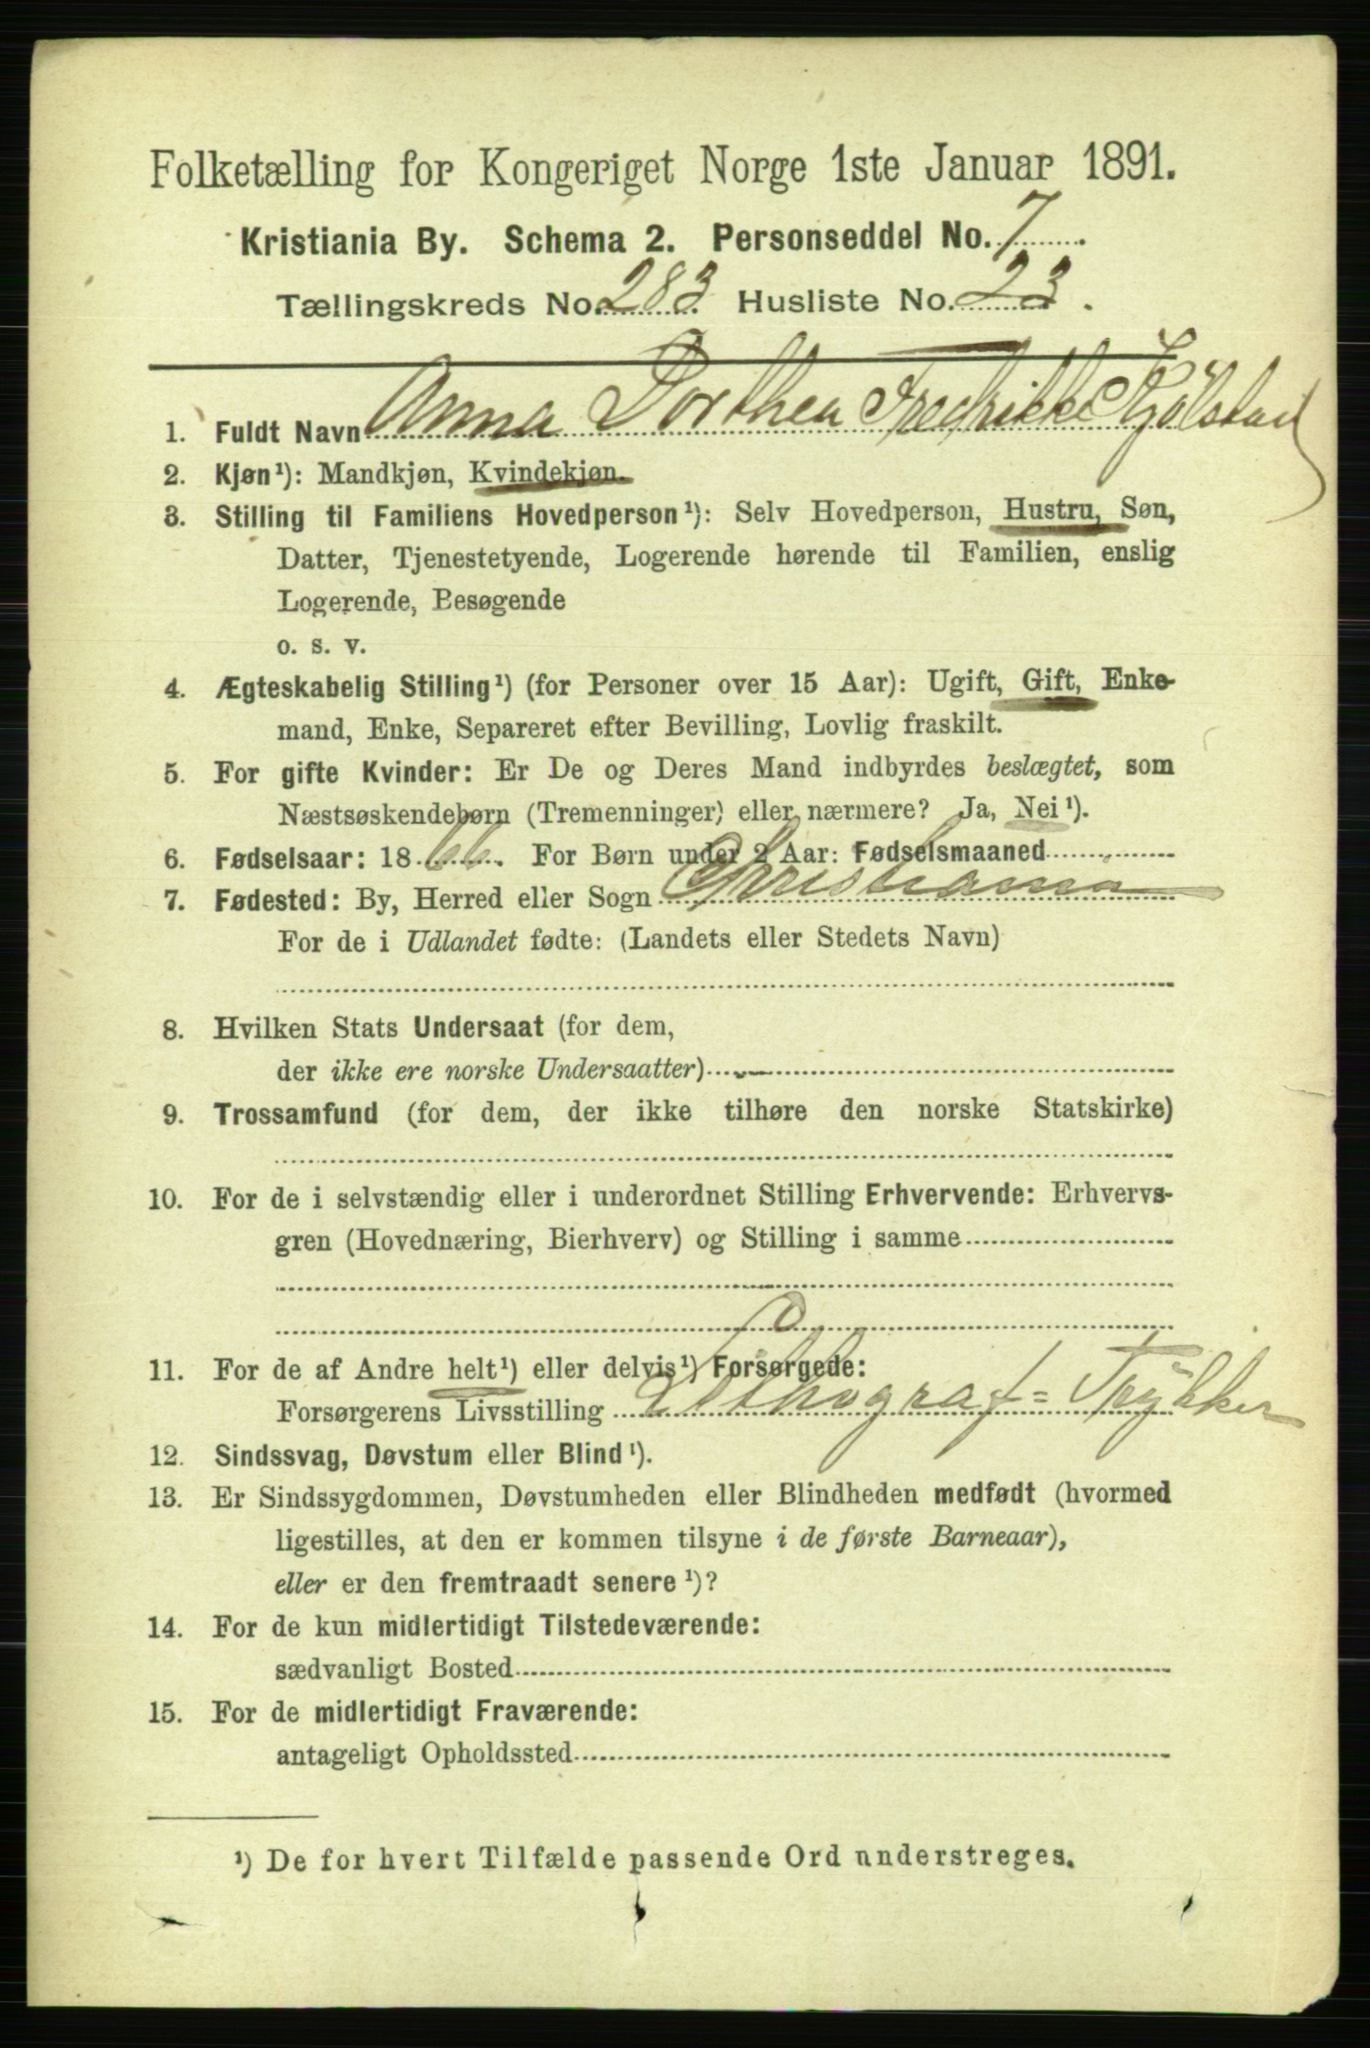 Folketælling for Kongeriget Norge 1ste Januar 1891.
Kristiania By. Schema 2. Personseddel No. 7
Tællingskreds No. 283 Husliste No. 23.
1. Fuldt Navn Anna Dorthea Fredrikke Kjølstad
2. Kjøn¹): Mandkjøn, Kvindekjøn.
3. Stilling til Familiens Hovedperson¹): Selv Hovedperson, Hustru, Søn,
Datter, Tjenestetyende, Logerende hørende til Familien, enslig
Logerende, Besøgende
o. s. v.
4. Ægteskabelig Stilling¹) (for Personer over 15 Aar): Ugift, Gift, Enke-
mand, Enke, Separeret efter Bevilling, Lovlig fraskilt.
5. For gifte Kvinder: Er De og Deres Mand indbyrdes beslægtet, som
Næstsøskendebørn (Tremenninger) eller nærmere? Ja, Nei¹).
6. Fødselsaar: 1866. For Børn under 2 Aar: Fødselsmaaned
7. Fødested: By, Herred eller Sogn Christiania
For de i Udlandet fødte: (Landets eller Stedets Navn)
8. Hvilken Stats Undersaat (for dem,
der ikke ere norske Undersaatter)
9. Trossamfund (for dem, der ikke tilhøre den norske Statskirke)
10. For de i selvstændig eller i underordnet Stilling Erhvervende: Erhvervs-
gren (Hovednæring, Bierhverv) og Stilling i samme
0
11. For de af Andre helt¹) eller delvis¹) Forsørgede:
Forsørgerens Livsstilling Lithograf=Trykker
12. Sindssvag, Døvstum eller Blind¹).
13. Er Sindssygdommen, Døvstumheden eller Blindheden medfødt (hvormed
ligestilles, at den er kommen tilsyne i de første Barneaar),
eller er den fremtraadt senere¹)?
14. For de kun midlertidigt Tilstedeværende:
sædvanligt Bosted
15. For de midlertidigt Fraværende:
antageligt Opholdssted
¹) De for hvert Tilfælde passende Ord understreges.